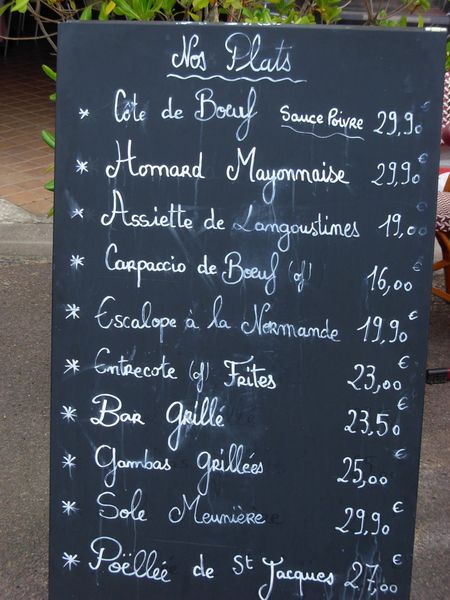 Nos Plats
* Côte de Boeuf Sauce Poivre 29,90 €
* Homard Mayonnaise 29,90 €
* Assiette de Langoustines 19,00 €
* Carpaccio de Boeuf (of) 16,00 €
* Escalope à la Normande 19,90 €
* Entrecote (of) Frites 23,00 €
* Bar Grillé 23,50 €
* Gambas Grillées 25,00 €
* Sole Meunière 29,90 €
* Poëllée de St Jacques 27,00 €